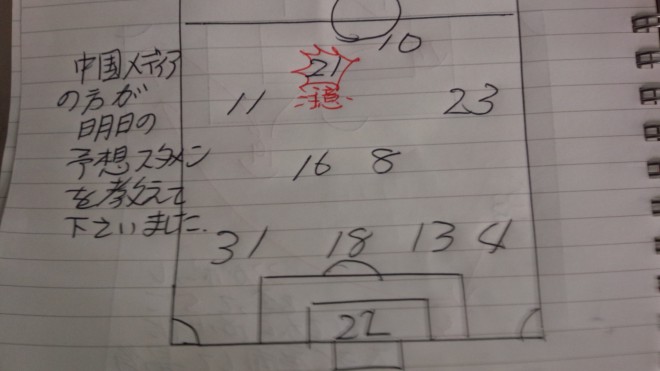 中国メディア
の方が
明日の
予想スタメン
を教えて
下さいました.
10
21
注意
11
23
16 8
31 18 13 4
22